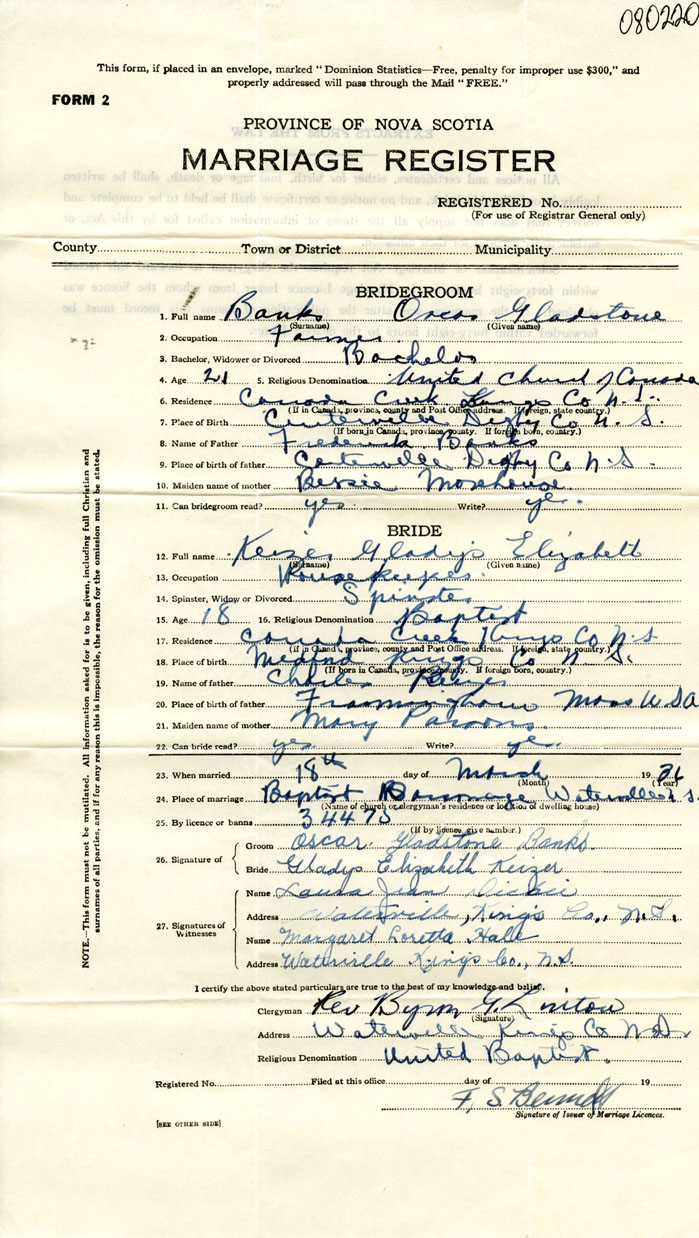 080220
This form, if placed in an envelope, marked "Dominion Statistics—Free, penalty for improper use $300," and
properly addressed will pass through the Mail "FREE."
FORM 2
PROVINCE OF NOVA SCOTIA
MARRIAGE REGISTER
REGISTERED No.
(For use of Registrar General only)
County Town or District Municipality
BRIDEGROOM
1. Full name Banks Oscar Gladstone
(Surname) (Given name)
2. Occupation Farmer
3. Bachelor, Widower or Divorced Bachelor
4. Age 21 5. Religious Denomination United Church of Canada
6. Residence Canada Creek Kings Co N.S.
(If in Canada, province, county and Post Office address. If foreign, state country.)
7. Place of Birth Centreville Digby Co N.S.
(If born in Canada, province, county. If foreign born, country.)
8. Name of Father Frederick Banks
9. Place of birth of father Centreville Digby Co N.S.
10. Maiden name of mother Bessie Morehouse
11. Can bridegroom read? yes Write? yes.
BRIDE
12. Full name Keizer Gladys Elizabeth
(Surname) (Given name)
13. Occupation Housekeeper
14. Spinster, Widow or Divorced Spinster
15. Age 18 16. Religious Denomination Baptist
17. Residence Canada Creek Kings Co N.S
(If in Canada, province, county and Post Office address. If foreign, state country.)
18. Place of birth Medford Kings Co N.S.
(If born in Canada, province, county. If foreign born, country.)
19. Name of father Charles Keizer
20. Place of birth of father Framingham Mass USA
21. Maiden name of mother Mary Parsons
22. Can bride read? yes Write? yes.
23. When married 18th day of March 19 36
(Month) (Year)
24. Place of marriage Baptist Parsonage Waterville N.S.
(Name of church or clergyman's residence or location of dwelling house)
25. By licence or banns 34475
(If by licence, give number.)
26. Signature of
Groom Oscar Gladstone Banks.
Bride Gladys Elizabeth Keizer
27. Signatures of Witnesses
Name Laura Jean Dickie
Address Waterville, King's Co., N.S.
Name Margaret Loretta Hall
Address Waterville King's Co., N.S.
I certify the above stated particulars are true to the best of my knowledge and belief.
Clergyman Rev Byron G.
(Signature)
Address Waterville Kings Co N.S.
Religious Denomination United Baptist.
Registered No. Filed at this office day of 19
F. S. Bennett
Signature of Issuer of Marriage Licences.
[SEE OTHER SIDE]
NOTE.—This form must not be mutilated. All information asked for is to be given, including full Christian and
surnames of all parties, and if for any reason this is impossible, the reason for the omission must be stated.